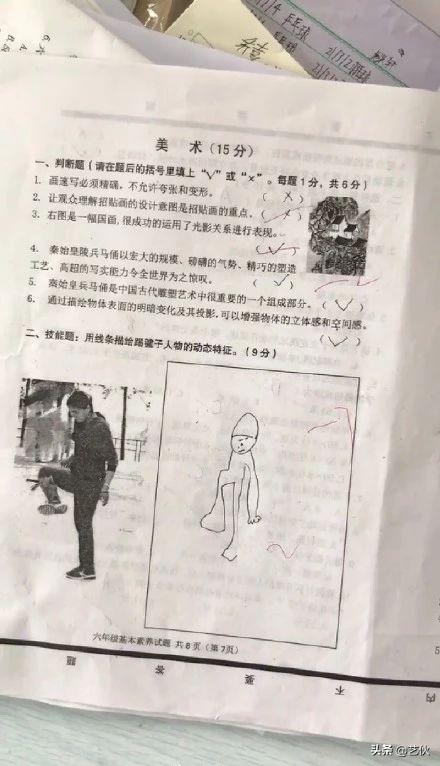 美 术(15分)
一、判断题(请在题后的括号里填上“√”或“×”。每题1分,共6分)
1. 画速写必须精确,不允许夸张和变形。 (×)
2. 让观众理解招贴画的设计意图是招贴画的重点。 (×)
3. 右图是一幅国画,很成功的运用了光影关系进行表现。
(√)
4. 秦始皇陵兵马俑以宏大的规模、磅礴的气势、精巧的塑造
工艺、高超的写实能力令全世界为之惊叹。 (√)
5. 秦始皇兵马俑是中国古代雕塑艺术中很重要的一个组成部分。(√)
6. 通过描绘物体表面的明暗变化及其投影,可以增强物体的立体感和空间感。
(√)
二、技能题:用线条描绘踢毽子人物的动态特征。(9分)
六年级基本素养试题 共8页(第7页)
题 答 要 不 内
头条@艺伙